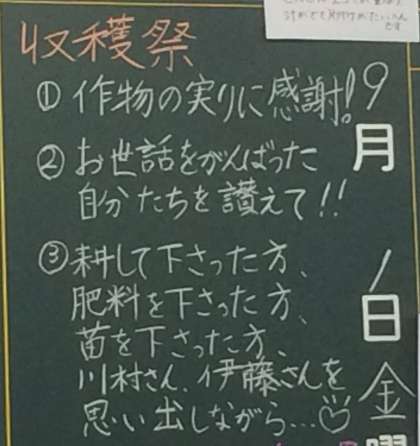 収穫祭
①作物の実りに感謝!
②お世話をがんばった
自分たちを讃えて!!
③耕して下さった方、
肥料を下さった方、
苗を下さった方、
川村さん、伊藤さんを
思い出しながら…
9月1日金曜